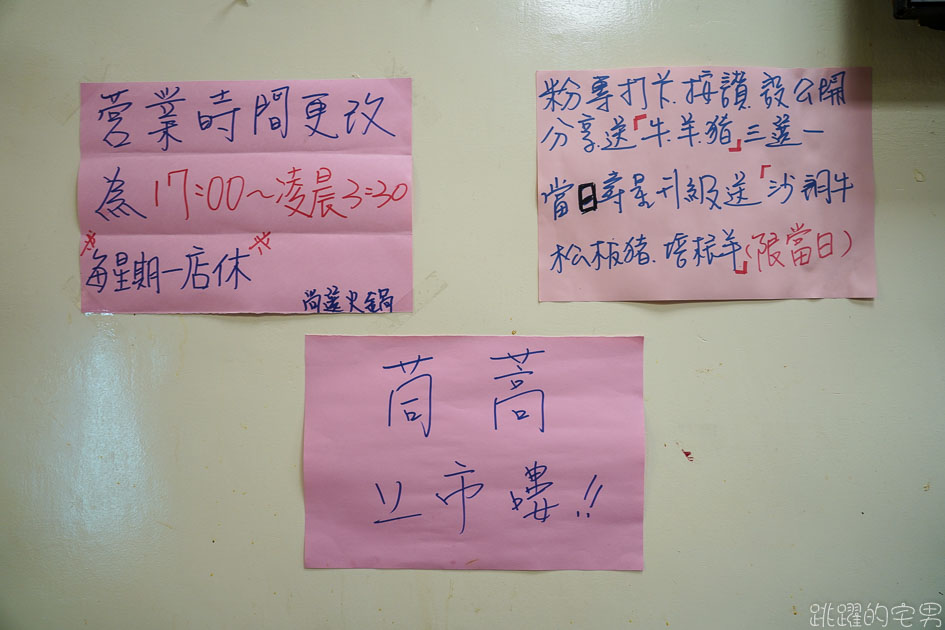 營業時間更改
為 17:00~凌晨3:30
※每星期一店休※
尚盛火鍋
粉專打卡.按讚.設公開
分享送「牛.羊.豬」三選一
當日壽星升級送「沙朗牛
松板豬.培根羊」(限當日)
茼蒿
上市嘍!!
跳躍的宅男